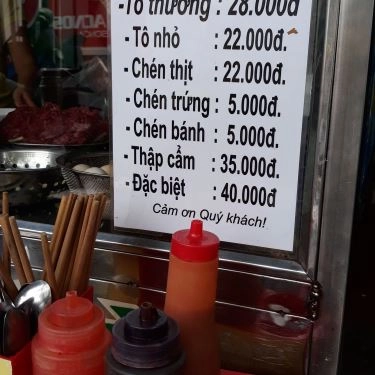 -Tô thường : 28.000đ
-Tô nhỏ : 22.000đ.
-Chén thịt : 22.000đ.
-Chén trứng : 5.000đ.
-Chén bánh : 5.000đ.
-Thập cẩm : 35.000đ.
-Đặc biệt : 40.000đ
Cảm ơn Quý khách!